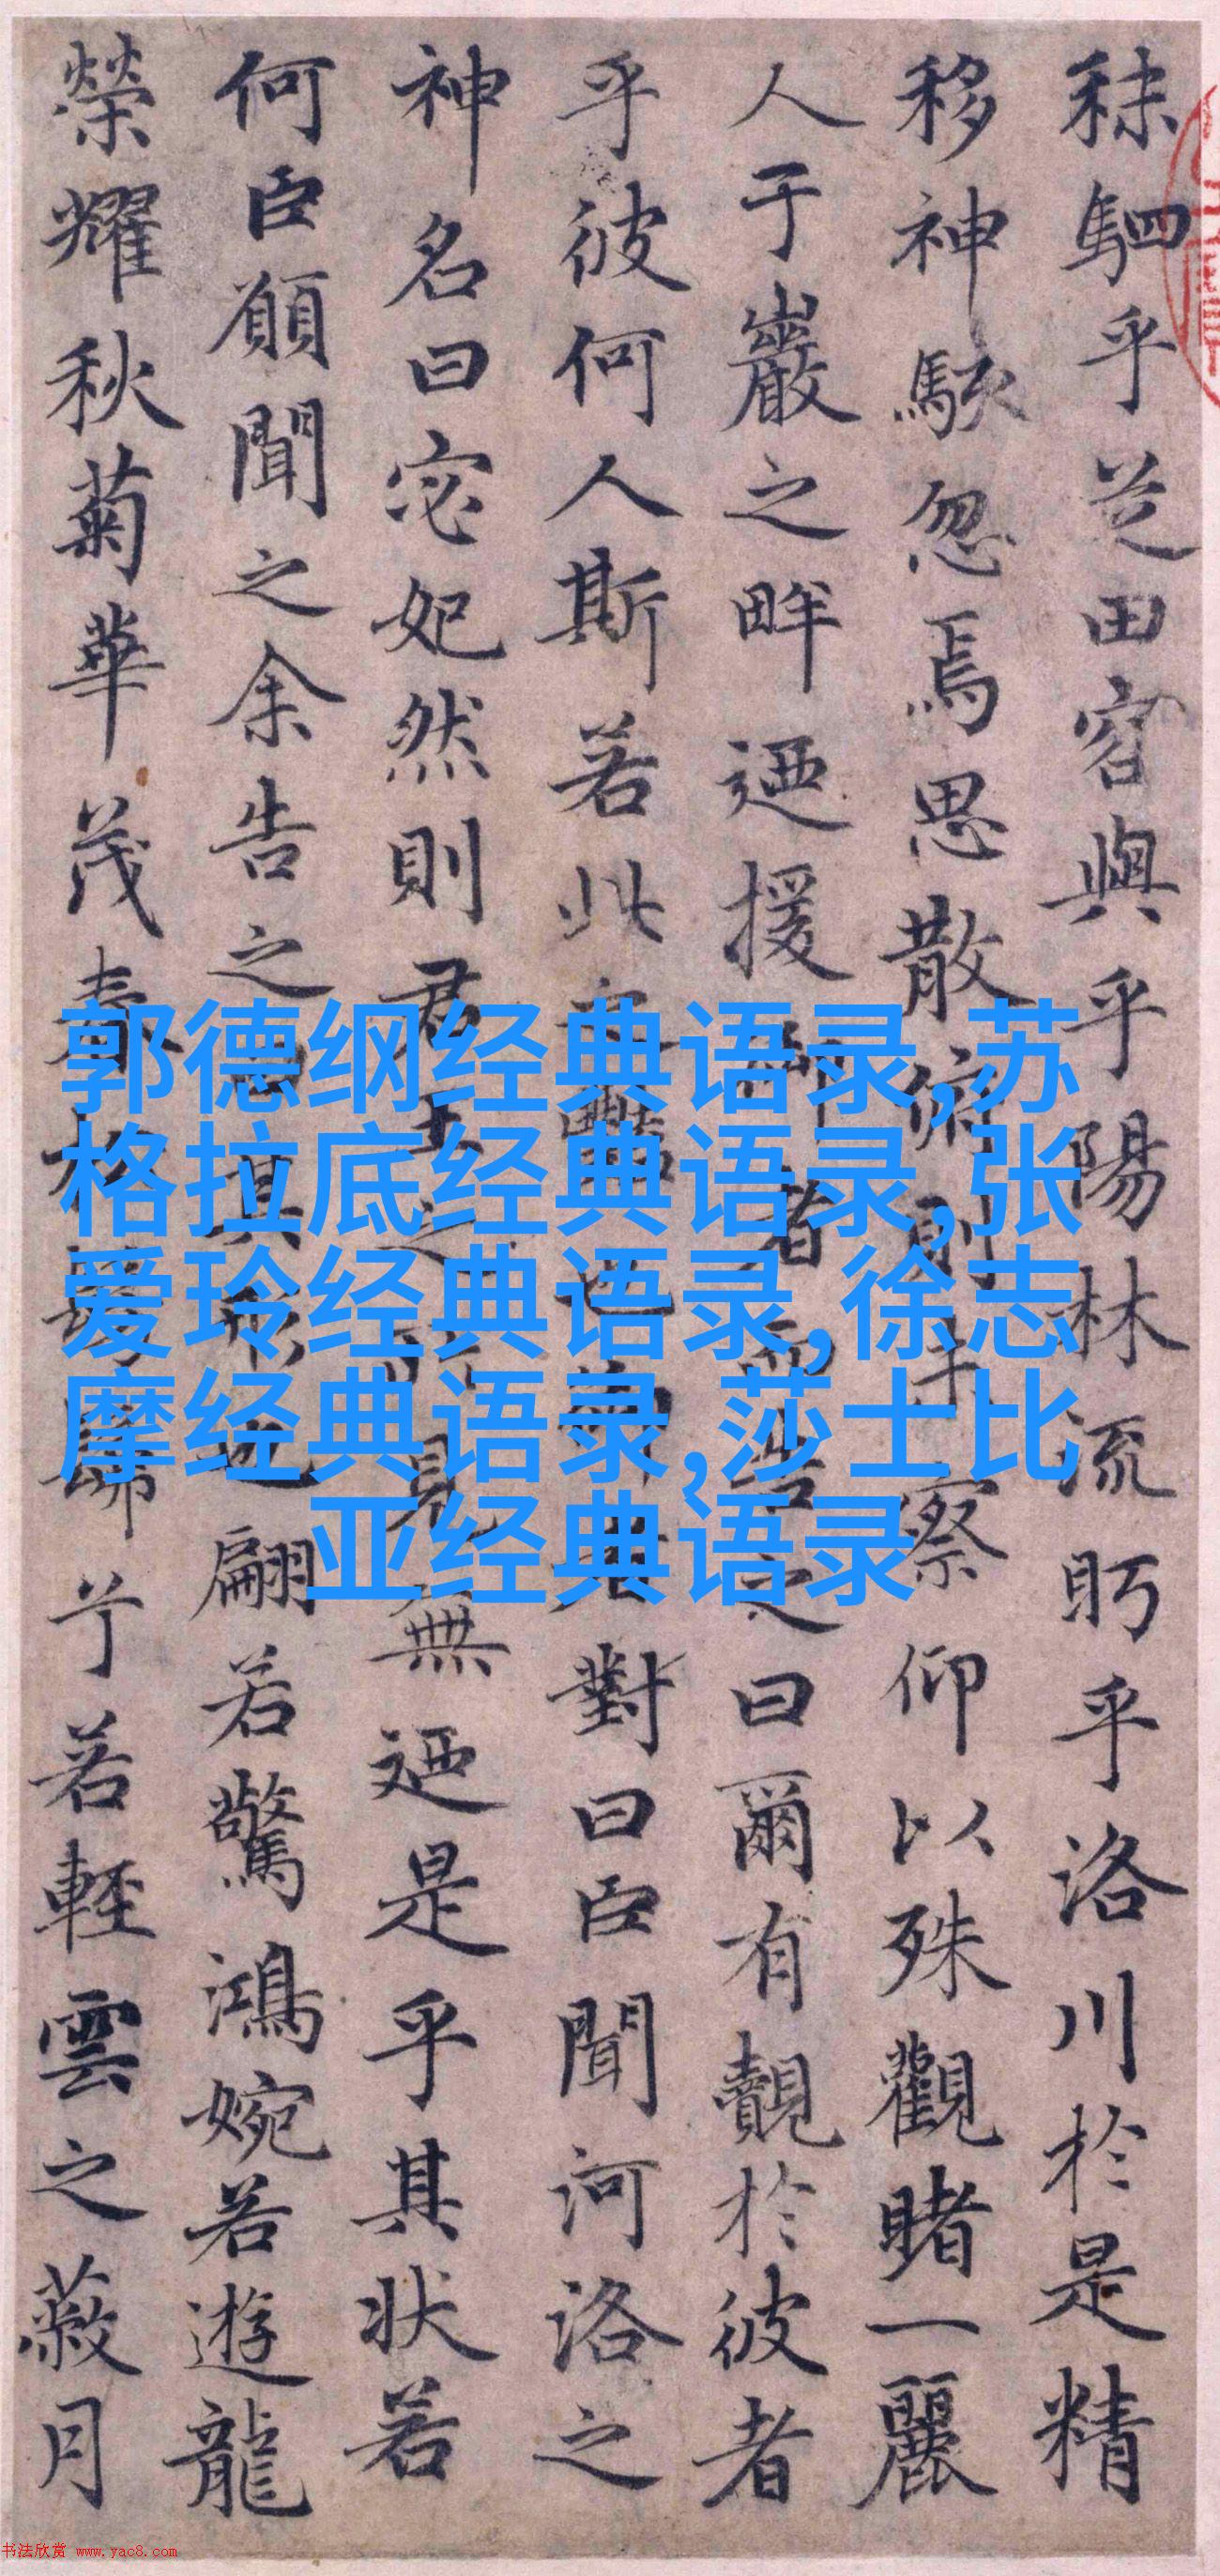 秣駟乎芝田容與乎陽林流眄乎洛川於是精
移神駭忽焉思散俯則未察仰以殊觀睹一麗
人于巖之畔迺援御者而告之曰爾有覿於彼者
乎彼何人斯若此之豔也御者對曰臣聞河洛之
神名曰宓妃然則君王之所見無迺是乎其狀若
何臣願聞之余告之曰其形也翩若驚鴻婉若遊龍
榮耀秋菊華茂春松髣髴兮若輕雲之蔽月
郭德纲经典语录,苏
格拉底经典语录,张
爱玲经典语录,徐志
摩经典语录,莎士比
亚经典语录
书法欣赏 www.yac8.com